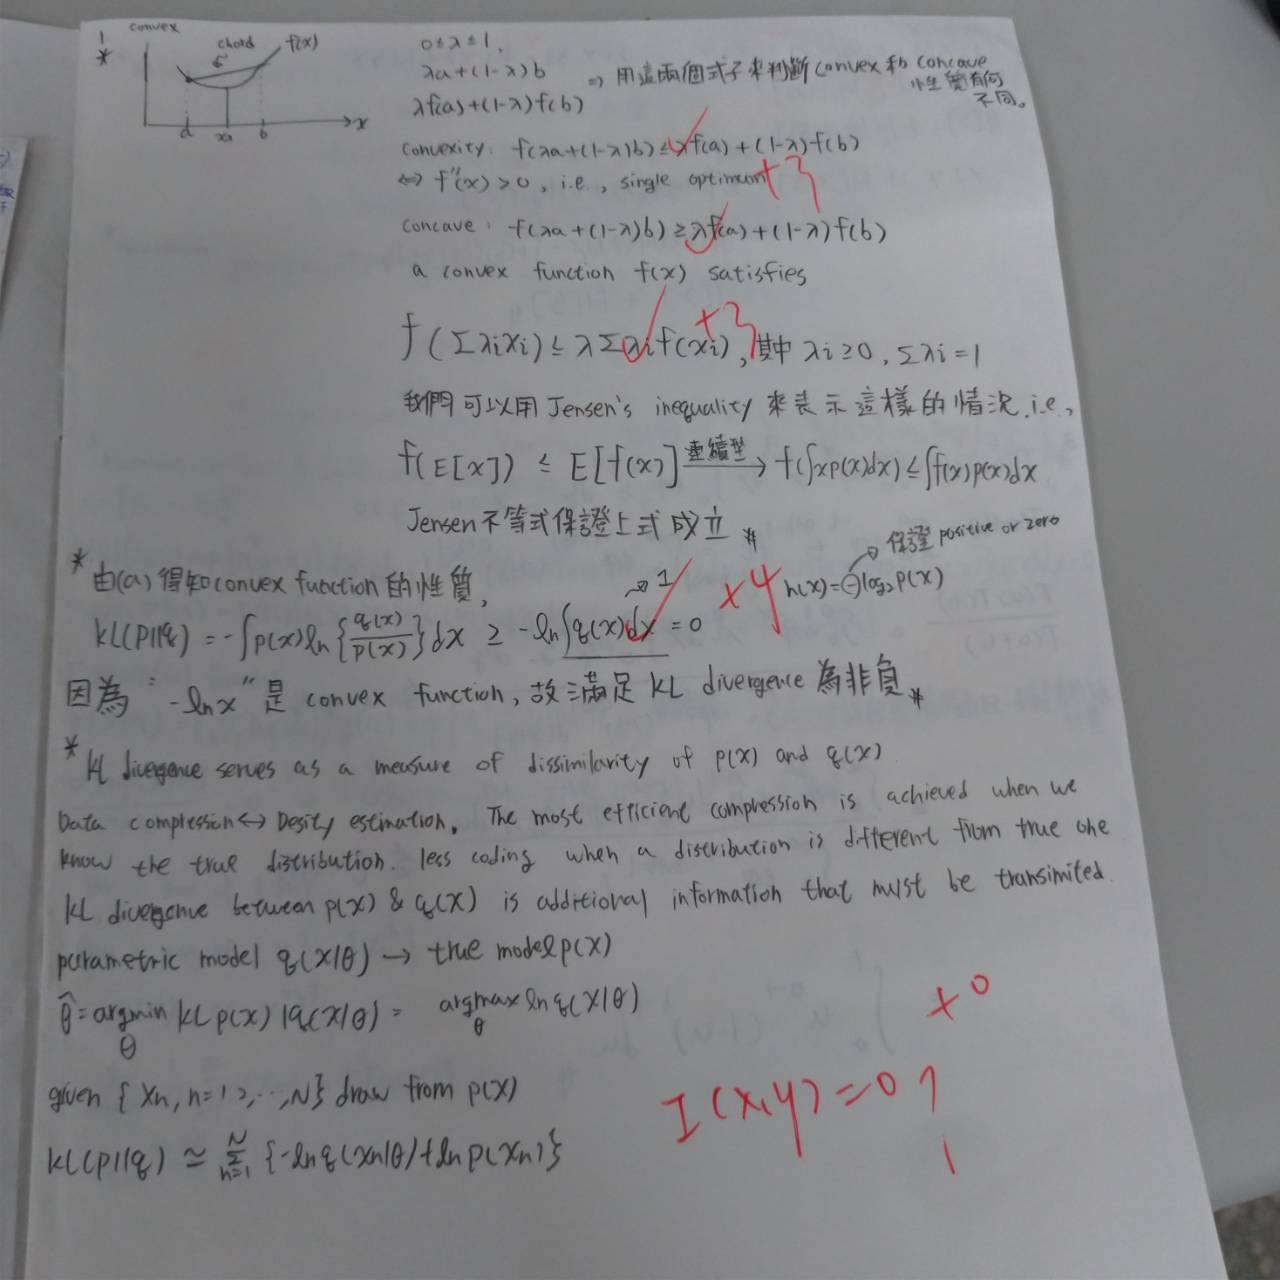 1
*
convex
chord
f(x)
a xλ b x
0≤λ≤1,
λa+(1-λ)b ⇒ 用這兩個式子來判斷 convex 和 concave
性質有何
不同。
λf(a)+(1-λ)f(b)
convexity: f(λa+(1-λ)b) ≤ λf(a)+(1-λ)f(b)
⇔ f''(x)>0, i.e., single optimum +3
concave: f(λa+(1-λ)b) ≥ λf(a)+(1-λ)f(b)
a convex function f(x) satisfies
f(Σλixi) ≤ λΣλif(xi), 其中 λi≥0, Σλi=1
+3
我們可以用 Jensen's inequality 來表示這樣的情況 i.e.,
f(E[x]) ≤ E[f(x)] 連續型 → f(∫xp(x)dx) ≤ ∫f(x)p(x)dx
Jensen不等式保證上式成立 #
→ 保證 positive or zero
* 由(a)得知convex function的性質,
→ 1
+4
h(x)=-log₂p(x)
KL(p||q) = -∫p(x)ln{q(x)/p(x)}dx ≥ -ln∫q(x)dx = 0
因為 "-lnx" 是 convex function, 故滿足 KL divergence 為非負 #
* KL divergence serves as a measure of dissimilarity of p(x) and q(x)
Data compression↔Desity estimation. The most efficient compression is achieved when we
know the true distribution. less coding when a distribution is different from true one
KL divergence between p(x) & q(x) is additional information that must be transimited.
parametric model q(x|θ) → true model p(x)
θ̂ = argmin KL p(x) |q(x|θ) = argmax ln q(x|θ)
θ θ
+0
given {xn, n=1 2,..,N} draw from p(x)
I(x,y)=0 ?
KL(p||q) ≃ Σ {-ln q(xn|θ)+ln p(xn)}
N
n=1